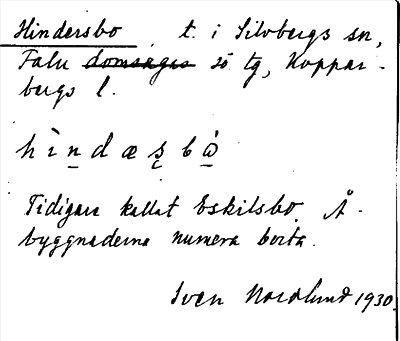 Hindersbo t. i Silvbergs sn,
Falu domsagas sö tg, Koppar-
bergs l.
hìn̲dæs̨bὼ̲
Tidigare kallat Eskilsbo. Å-
byggnaderna numera borta.
Sven Nordlund 1930.